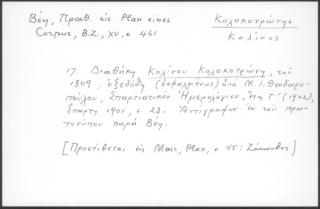 Βέη, Προσθ. εἰς Plan eines
Corpus, B.Z., XV, σ 461
Κολοκοτρώνης
Κολίνος
17. Διαθήκη Κολίνου Κολοκοτρώνη, τοῦ
1809, ἐξεδόθη (ἐσφαλμένως) ὑπὸ Μ.Ι. Θεοδωρο-
πούλου, Σπαρτιατικὸν Ἡμερολόγιον, ἔτος Γ' (1902),
Σπάρτη 1901, σ 23. Ἀντίγραφον ἐκ τοῦ πρω-
τοτύπου παρὰ Βέῃ.
[Προστίθεται εἰς Plan, σ 45: Ζάκυνθος]